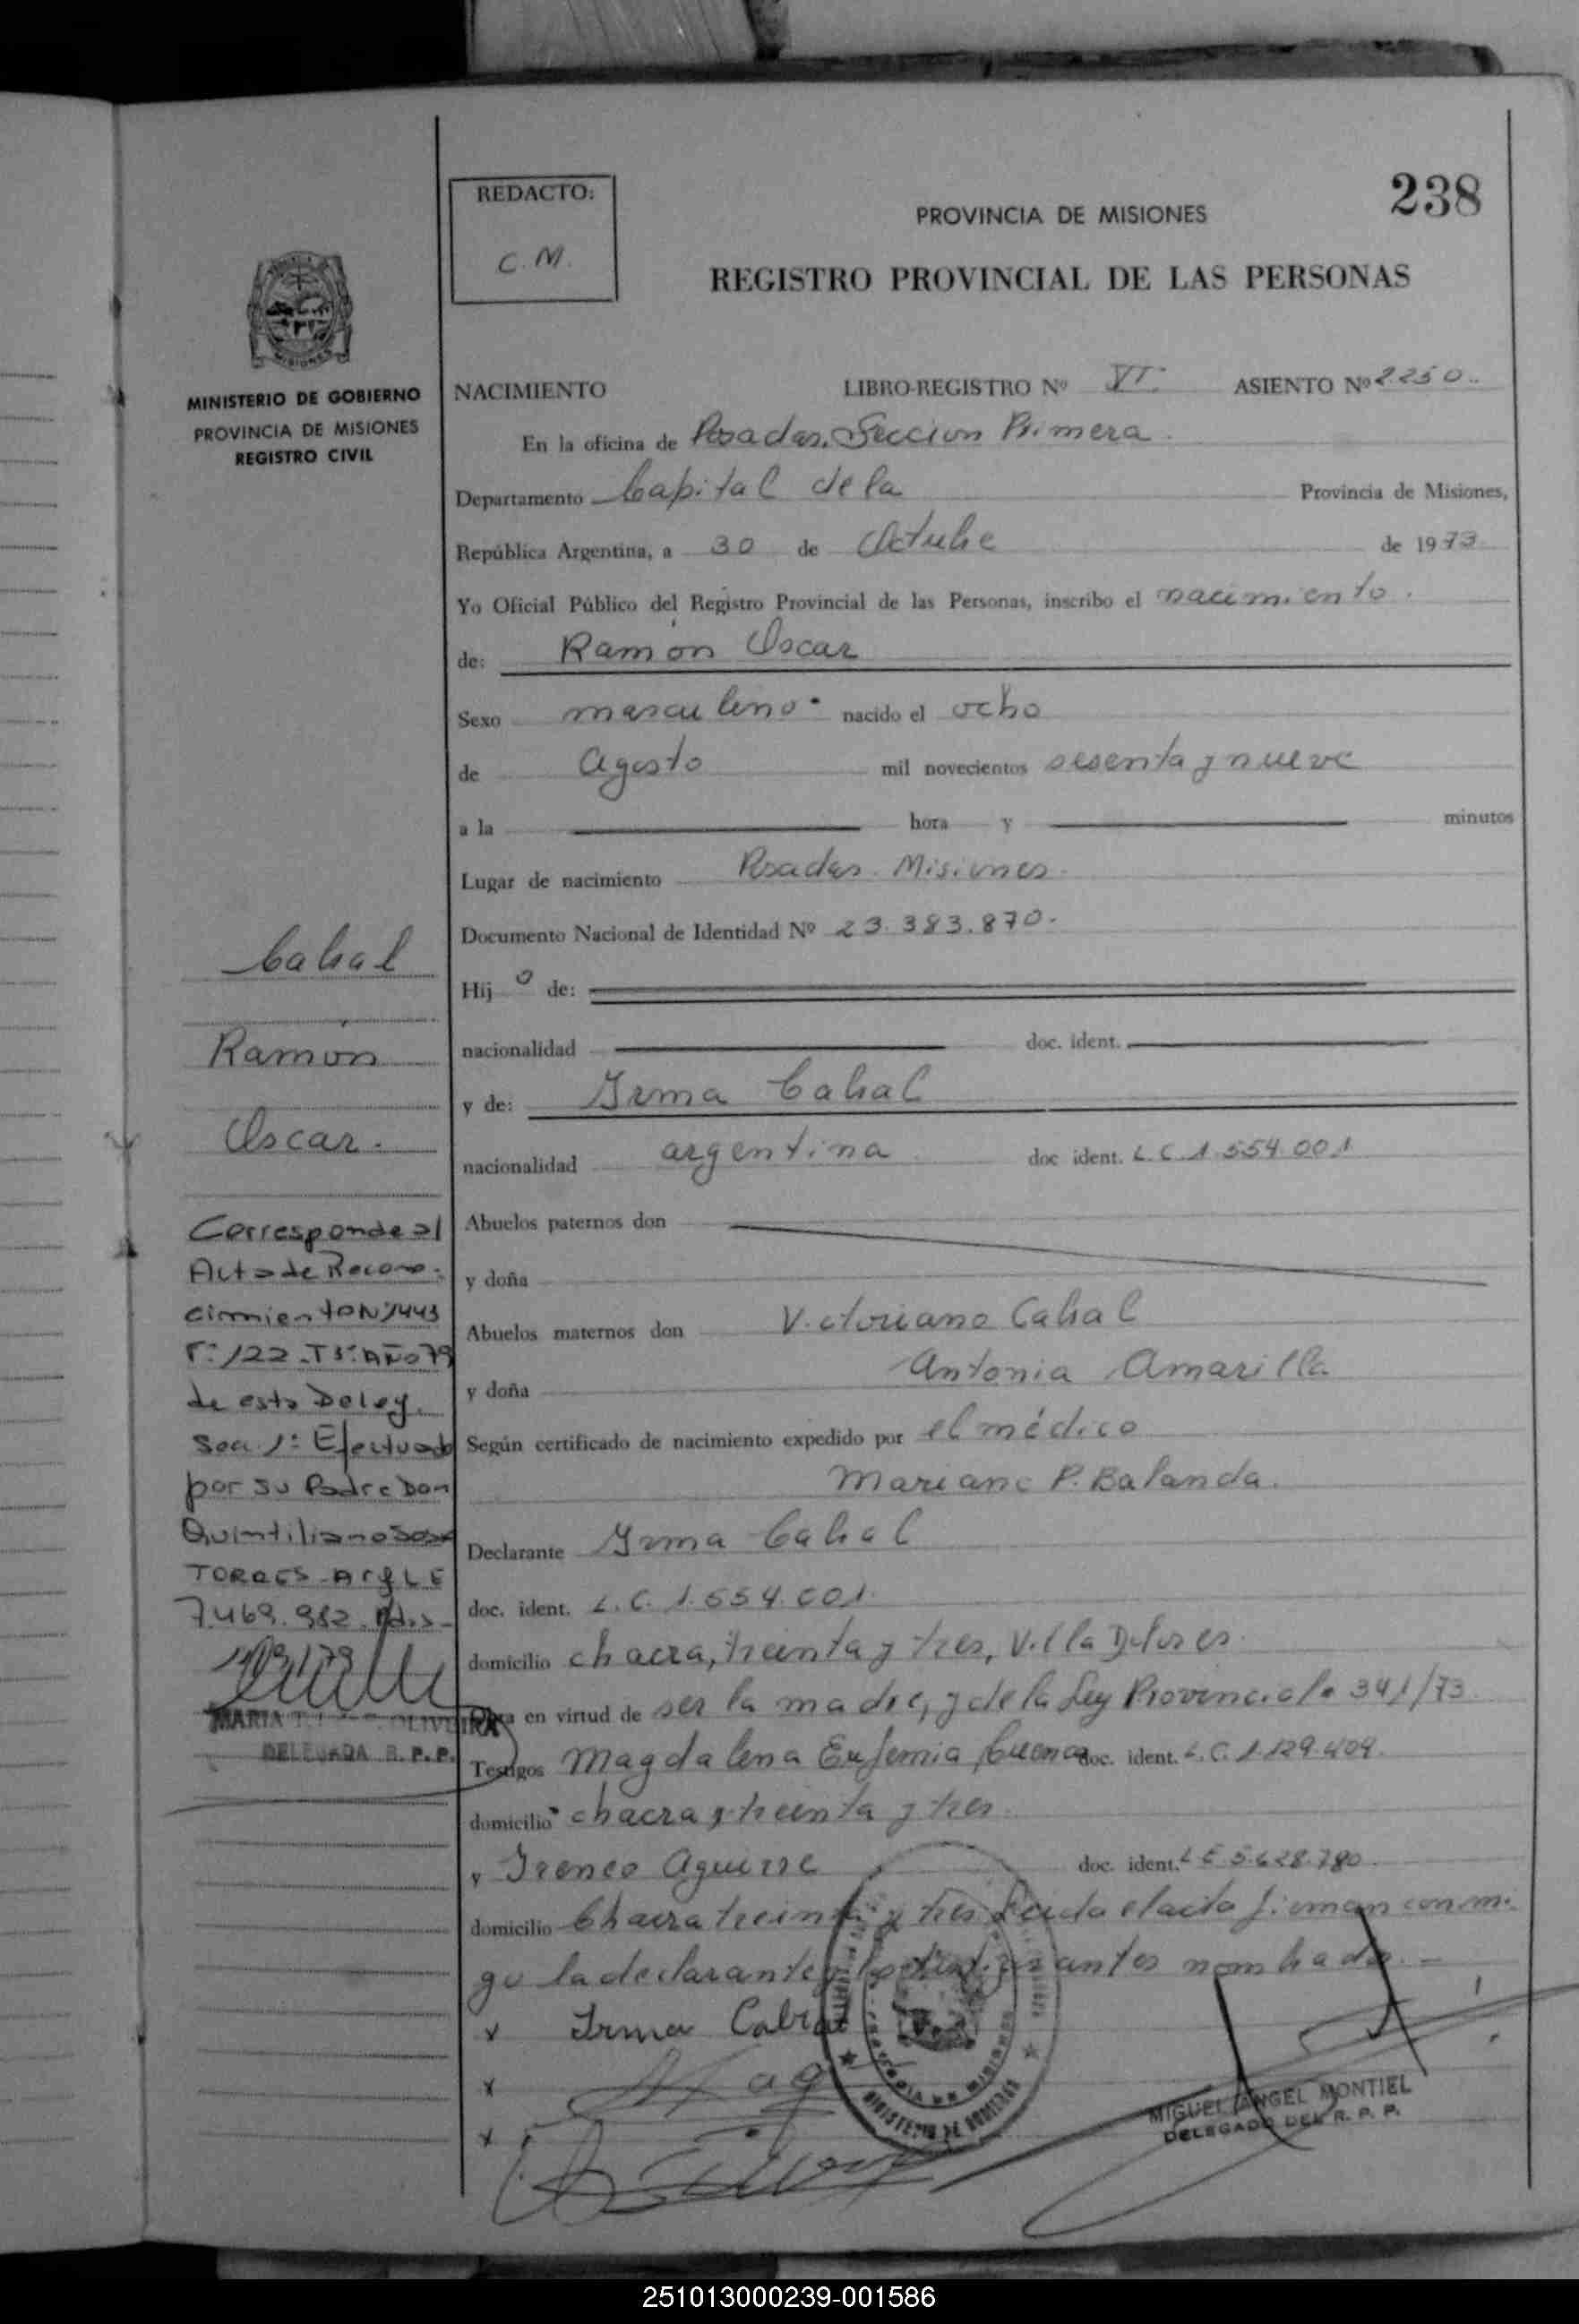 238
REDACTO:
C. M.
PROVINCIA DE MISIONES
REGISTRO PROVINCIAL DE LAS PERSONAS
MINISTERIO DE GOBIERNO
PROVINCIA DE MISIONES
REGISTRO CIVIL
NACIMIENTO LIBRO-REGISTRO Nº VI. ASIENTO Nº 2250.
En la oficina de Posadas. Seccion Primera
Departamento Capital de la Provincia de Misiones,
República Argentina, a 30 de Octubre de 1973
Yo Oficial Público del Registro Provincial de las Personas, inscribo el nacimiento.
de: Ramón Oscar
Sexo masculino. nacido el ocho
de agosto mil novecientos sesenta y nueve
a la hora y minutos
Lugar de nacimiento Posadas. Misiones.
Documento Nacional de Identidad Nº 23.383.870.
Hij o de:
nacionalidad doc. ident.
y de: Irma Cabral
nacionalidad argentina doc ident. L.C. 1.554.001
Abuelos paternos don
y doña
Abuelos maternos don Victoriano Cabral
y doña Antonia Amarilla
Según certificado de nacimiento expedido por el médico
Mariano P. Balanda.
Declarante Irma Cabral
doc. ident. L.C. 1.554.001.
domicilio chacra, treinta y tres, Villa Dolores.
Obra en virtud de ser la madre, y de la Ley Provincial. 341/73
Testigos Magdalena Eufemia Cuenca doc. ident. L.C. 1.129.409.
domicilio chacra treinta y tres.
y Ireneo Aguirre doc. ident. LE 5.628.780.
domicilio Chacra treinta y tres Leida el acta firman conmi
go la declarante y los testigos antes nombrados. -
x Irma Cabral
x
x
Cabral
Ramón
Oscar.
Corresponde al
Acta de Recono-
cimiento Nº 1443
Fº 122 - T 3º Año 79
de esta Deleg.
Sec. 1ª Efectuado
por su Padre Don
Quintiliano Sosa
TORRES - Arg LE
7.469.982. Pdas -
MARIA T. OLIVEIRA
DELEGADA R. P. P.
MINISTERIO DE GOBIERNO
PROVINCIA DE MISIONES
MIGUEL ANGEL MONTIEL
DELEGADO DEL R. P. P.
251013000239-001586